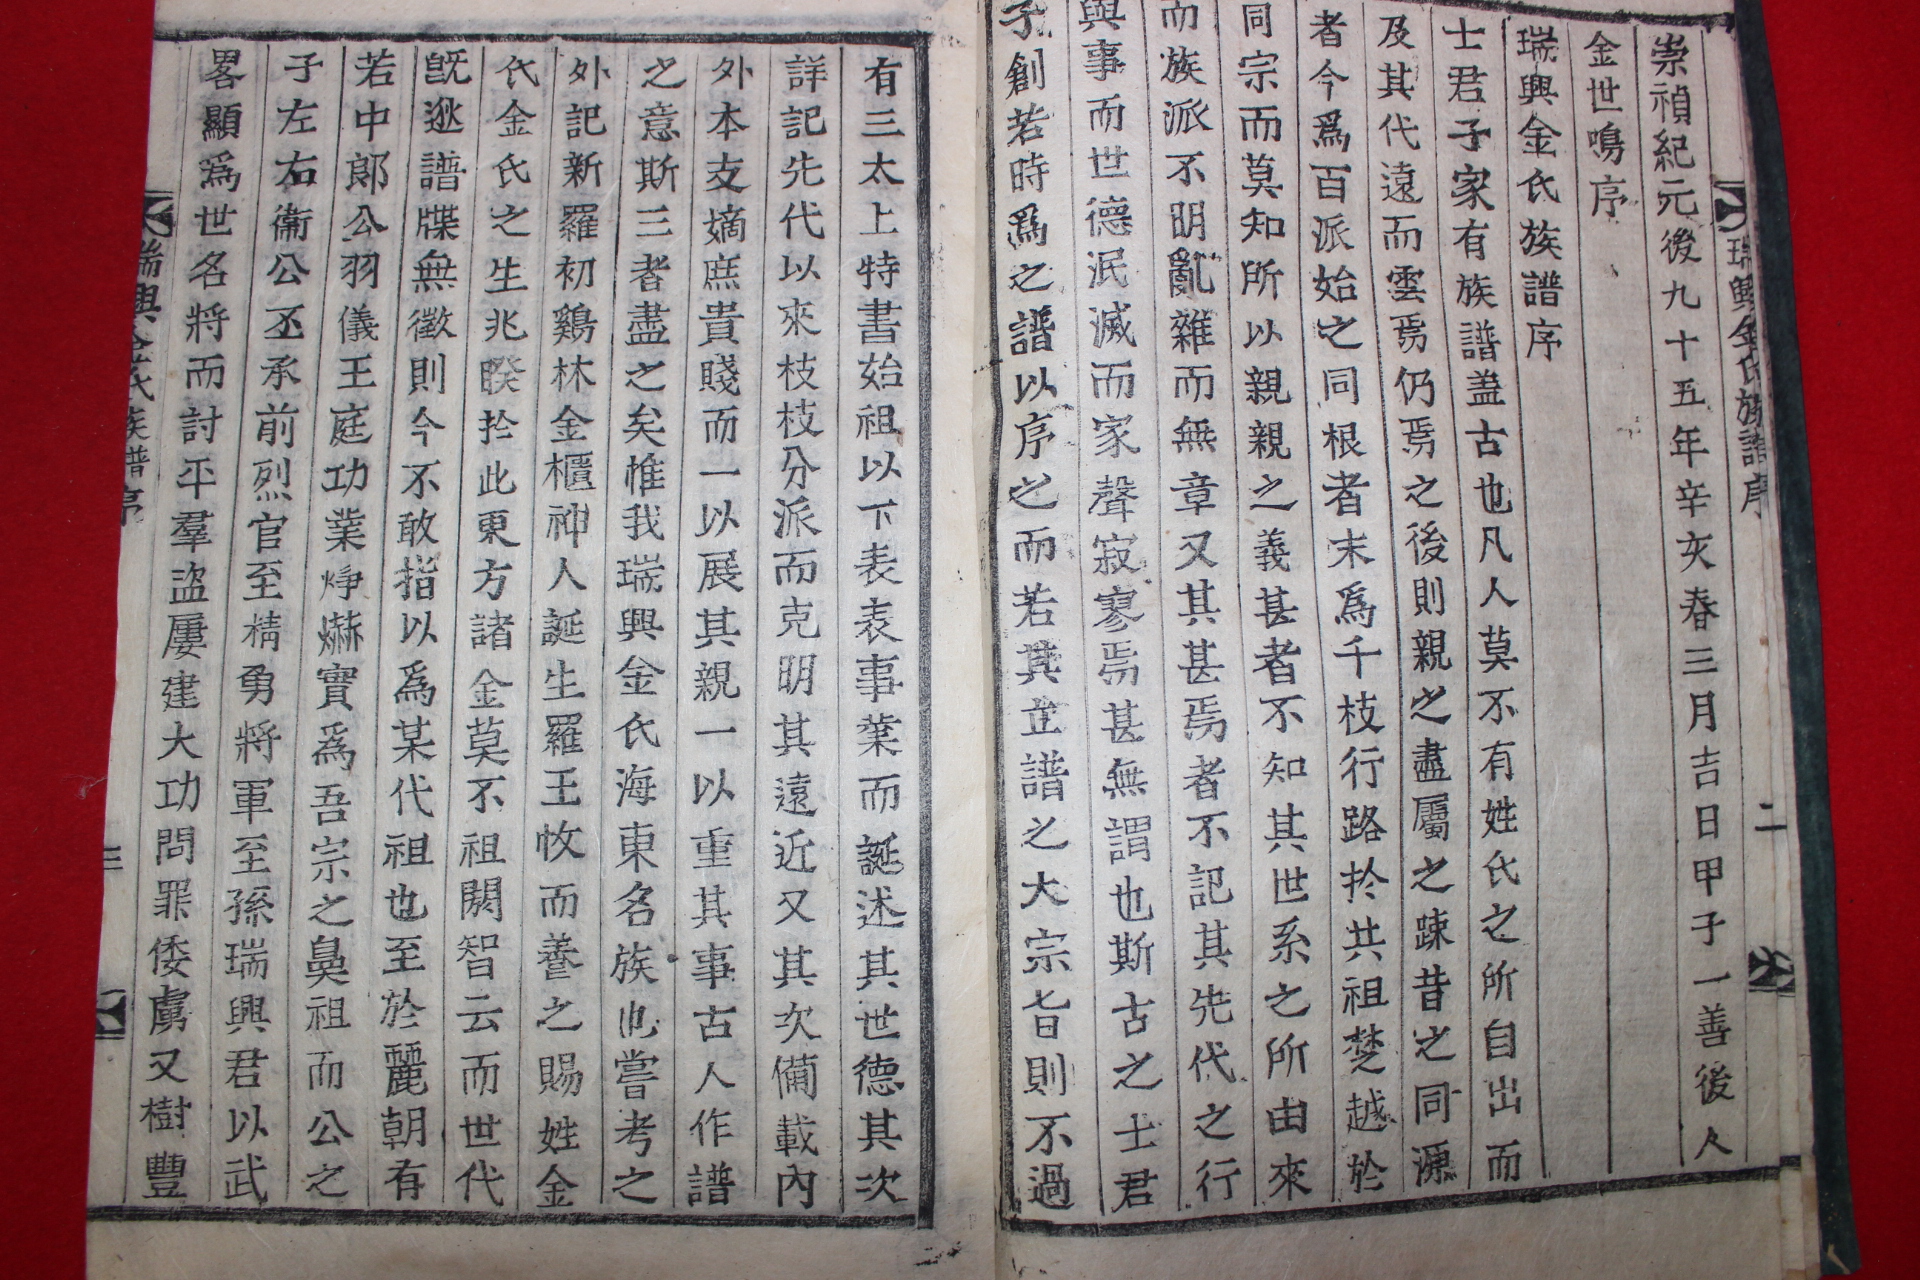 瑞興金氏族譜序
二
崇禎紀元後九十五年辛亥春三月吉日甲子一善後人
金世鳴序
瑞興金氏族譜序
士君子家有族譜盖古也凡人莫不有姓氏之所自出而
及其代遠而雲焉仍焉之後則親之盡屬之疎昔之同源
者今爲百派始之同根者末爲千枝行路於共祖楚越於
同宗而莫知所以親親之義甚者不知其世系之所由來
而族派不明亂雜而無章又其甚焉者不記其先代之行
與事而世德泯滅而家聲寂寥焉甚無謂也斯古之士君
子創若時爲之譜以序之而若其正譜之大宗旨則不過
有三太上特書始祖以下表表事業而誕述其世德其次
詳記先代以來枝枝分派而克明其遠近又其次備載內
外本支嫡庶貴賤而一以展其親一以重其事古人作譜
之意斯三者盡之矣惟我瑞興金氏海東名族也嘗考之
外記新羅初鷄林金櫃神人誕生羅王收而養之賜姓金
氏金氏之生兆睽於此東方諸金莫不祖閼智云而世代
旣逖譜牒無徵則今不敢指以爲某代祖也至於麗朝有
若中郞公羽儀王庭功業焯爀實爲吾宗之鼻祖而公之
子左右衛公丕承前烈官至精勇將軍至孫瑞興君以武
畧顯爲世名將而討平羣盜屢建大功問罪倭虜又樹豐
瑞興金氏族譜序
三